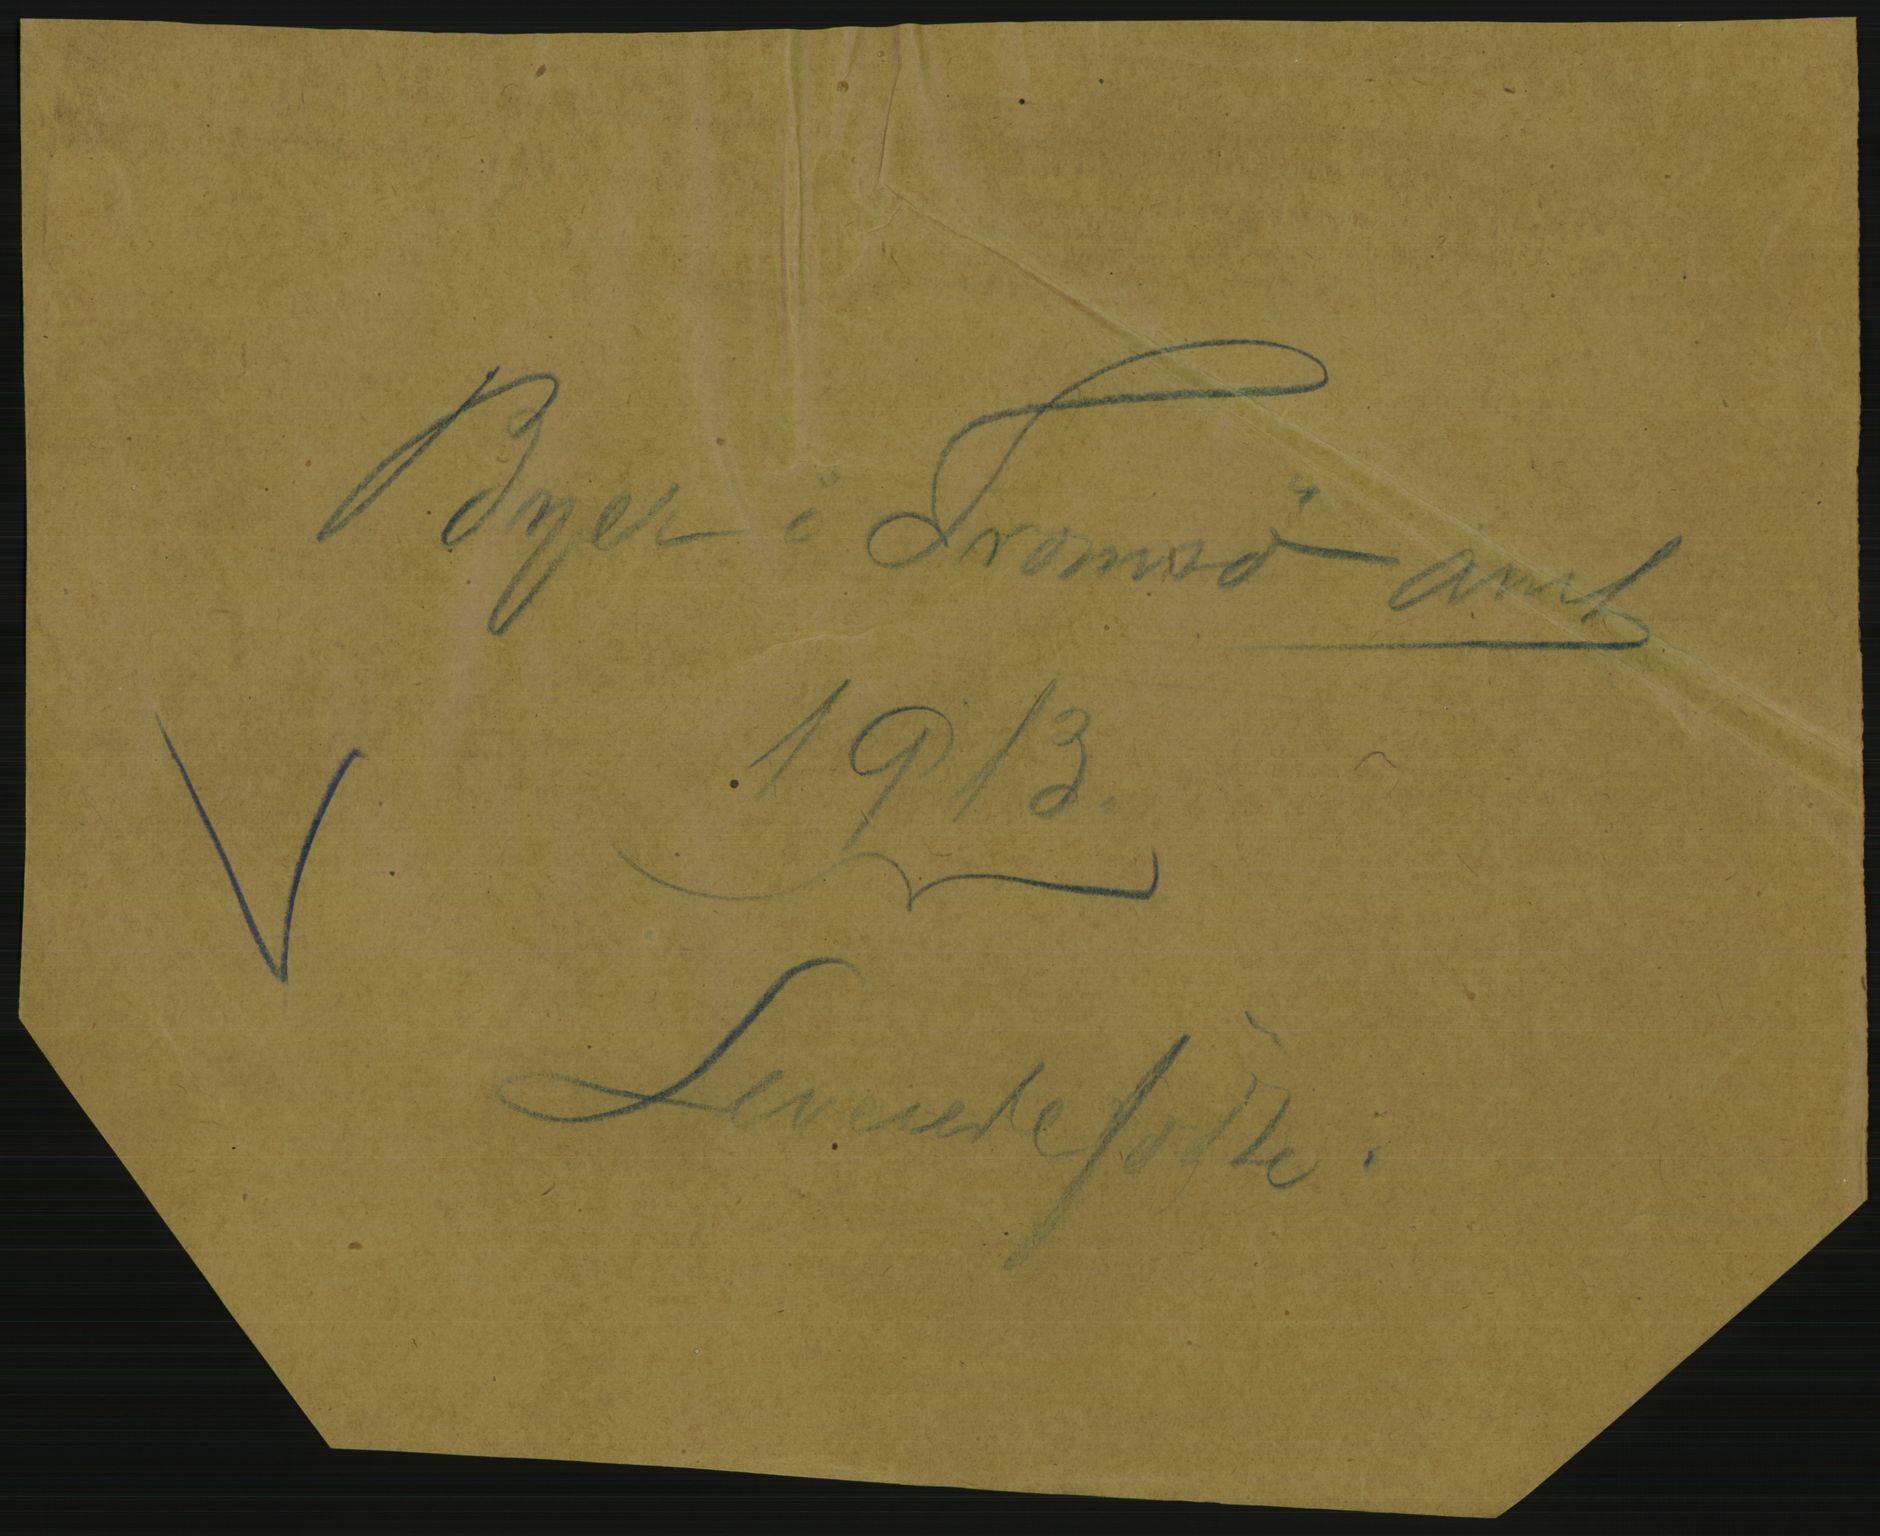 Byer i Tromsö amt
1913.
Levendefödte.